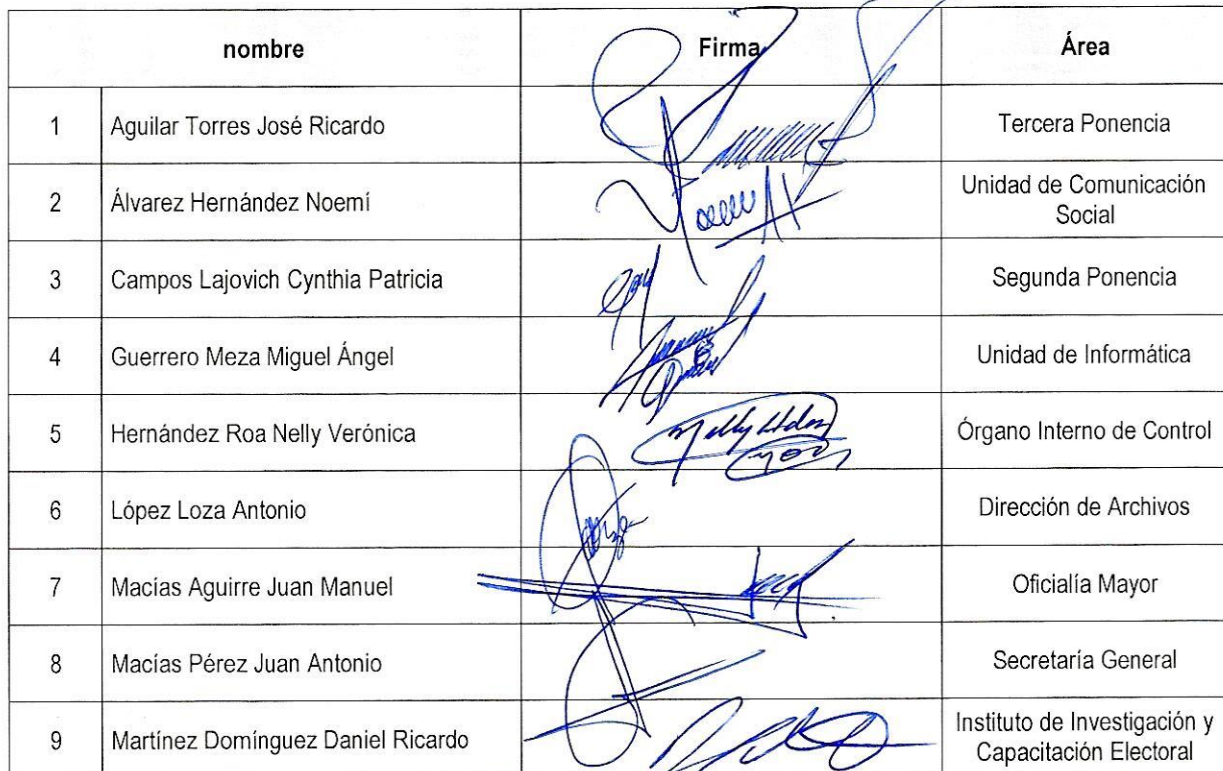 nombre Firma Área
1 Aguilar Torres José Ricardo Tercera Ponencia
2 Álvarez Hernández Noemí Unidad de Comunicación
Social
3 Campos Lajovich Cynthia Patricia Segunda Ponencia
4 Guerrero Meza Miguel Ángel Unidad de Informática
5 Hernández Roa Nelly Verónica Órgano Interno de Control
6 López Loza Antonio Dirección de Archivos
7 Macías Aguirre Juan Manuel Oficialía Mayor
8 Macías Pérez Juan Antonio Secretaría General
9 Martínez Domínguez Daniel Ricardo Instituto de Investigación y
Capacitación Electoral